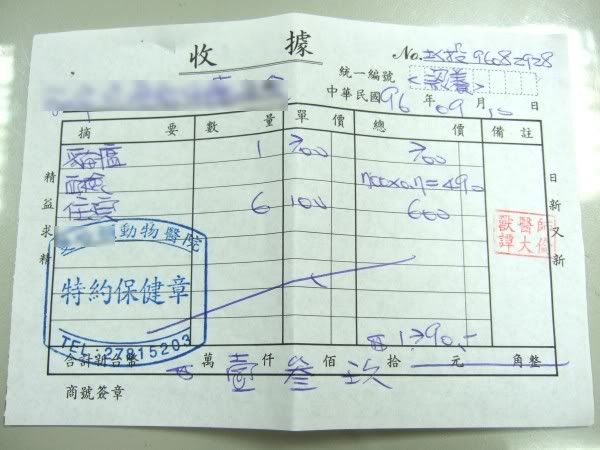 收據
No. 96082928
統一編號 <認養>
中華民國 96 年 09 月 10 日
摘要 數量 單價 總價 備註
貓瘟 1 700 700
血檢 700x0.7=490
住院 6 100 600
精益求精
日新又新
動物醫院
特約保健章
TEL:27815203
獸醫師
譚大倫
1790.-
合計新台幣 萬 壹 仟 佰 拾 玖 元 角整
商號簽章